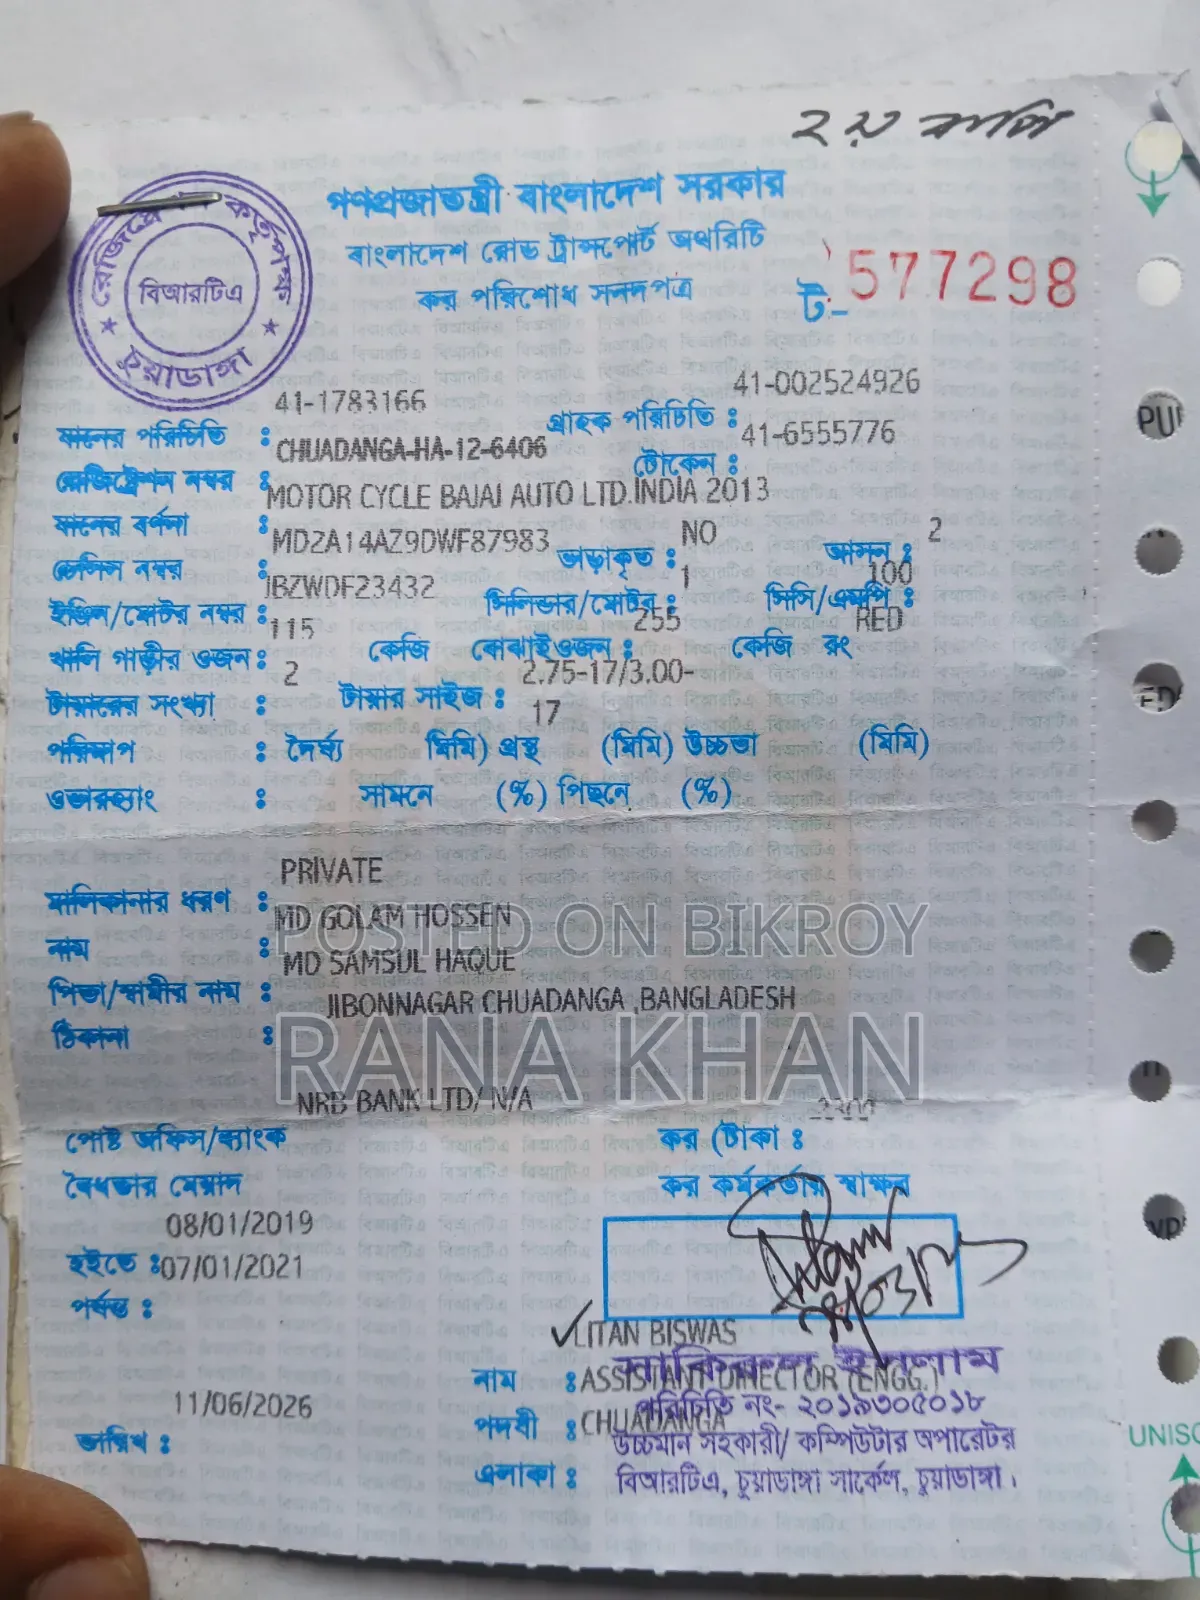 ২য় কপি
গণপ্রজাতন্ত্রী বাংলাদেশ সরকার
বাংলাদেশ রোড ট্রান্সপোর্ট অথরিটি
কর পরিশোধ সনদপত্র
ট- 577298
রেজিস্ট্রেশন কর্তৃপক্ষ
বিআরটিএ
চুয়াডাঙ্গা
যানের পরিচিতি : 41-1783166 গ্রাহক পরিচিতি : 41-002524926
রেজিস্ট্রেশন নম্বর : CHUADANGA-HA-12-6406 টোকেন : 41-6555776
যানের বর্ণনা : MOTOR CYCLE BAJAJ AUTO LTD.INDIA 2013
চেসিস নম্বর : MD2A14AZ9DWF87983 ভাড়াকৃত : NO আসন : 2
ইঞ্জিন/মোটর নম্বর : JBZWDF23432 সিলিন্ডার/মোটর : 1 সিসি/এমপি : 100
খালি গাড়ীর ওজন : 115 কেজি বোঝাই ওজন : 255 কেজি রং RED
টায়ারের সংখ্যা : 2 টায়ার সাইজ : 2.75-17/3.00-
17
পরিমাপ : দৈর্ঘ্য মিমি) প্রস্থ (মিমি) উচ্চতা (মিমি)
ওভারহ্যাং : সামনে (%) পিছনে (%)
মালিকানার ধরণ : PRIVATE
নাম : MD GOLAM HOSSEN
POSTED ON BIKROY
পিতা/স্বামীর নাম : MD SAMSUL HAQUE
ঠিকানা : JIBONNAGAR CHUADANGA ,BANGLADESH
RANA KHAN
পোষ্ট অফিস/ব্যাংক NRB BANK LTD/ N/A কর (টাকা : 2300
বৈধতার মেয়াদ কর কর্মকর্তার স্বাক্ষর
হইতে : 08/01/2019
পর্যন্ত : 07/01/2021
নাম : LITAN BISWAS
পদবী : ASSISTANT DIRECTOR (ENGG.)
তারিখ : 11/06/2026
এলাকা : CHUADANGA
সাকিরুল ইসলাম
পরিচিতি নং- ২০১৯৩০৫০১৮
উচ্চমান সহকারী/ কম্পিউটার অপারেটর
বিআরটিএ, চুয়াডাঙ্গা সার্কেল, চুয়াডাঙ্গা।